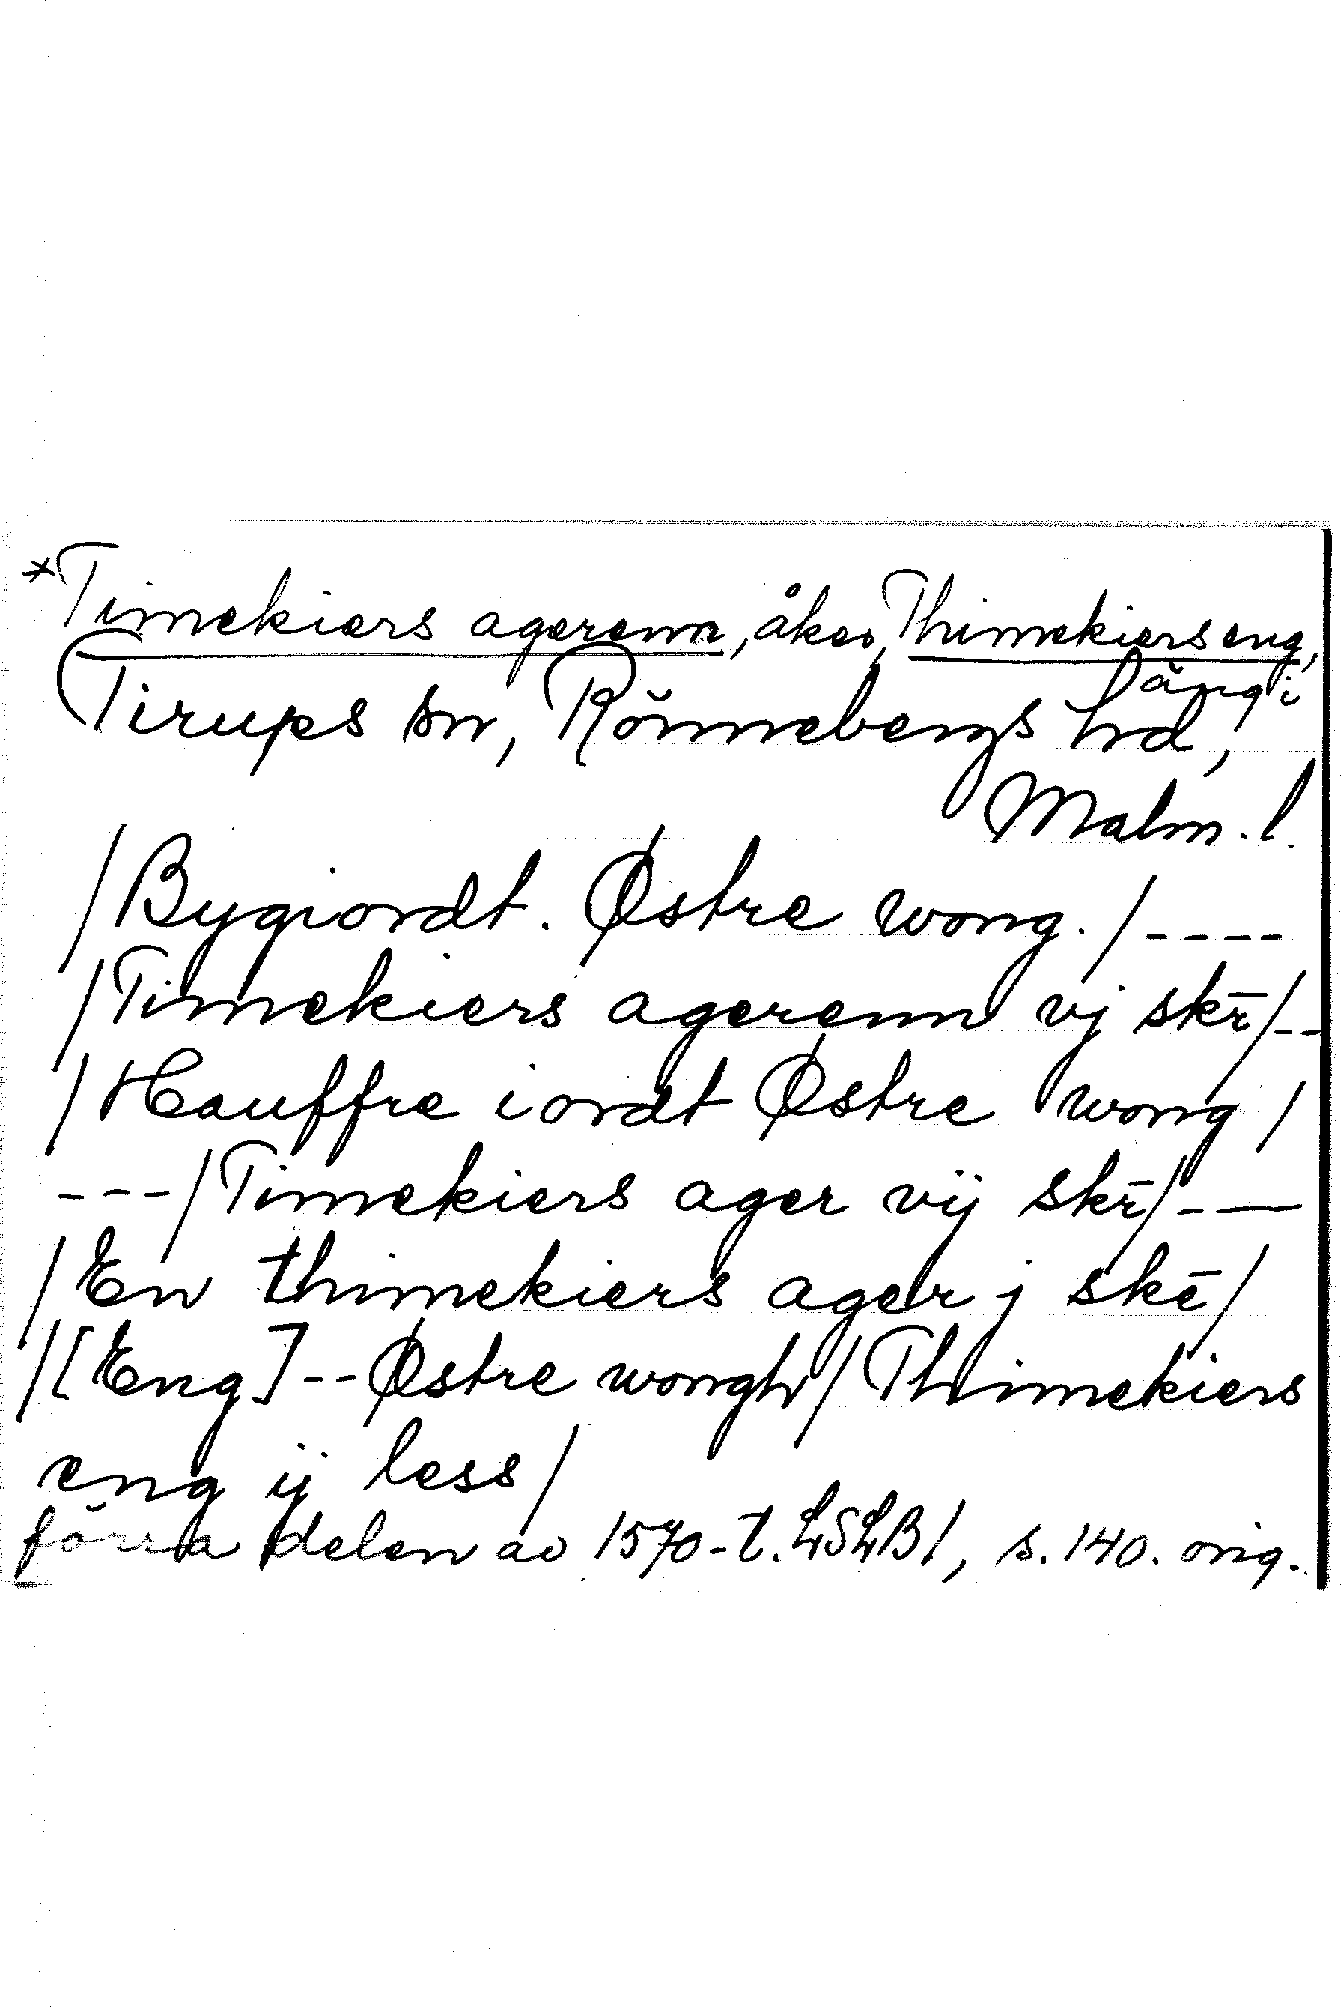 *Timekiers agerenn, åker, Thimekiers eng,
äng i
Tirups sn, Rönnebergs hd,
Malm. l.
/Bygiordt. Østre wong./----
/Timekiers agerenn vj skr̄/--
/Hauffre iordt Østre wong/
---/Timekiers ager vij skr̄/---
/En thimekiers ager j skē/
/[Eng]--Østre wongh/Thimekiers
eng ij less/
förra delen av 1570-t. LSLB1, s. 140. orig.